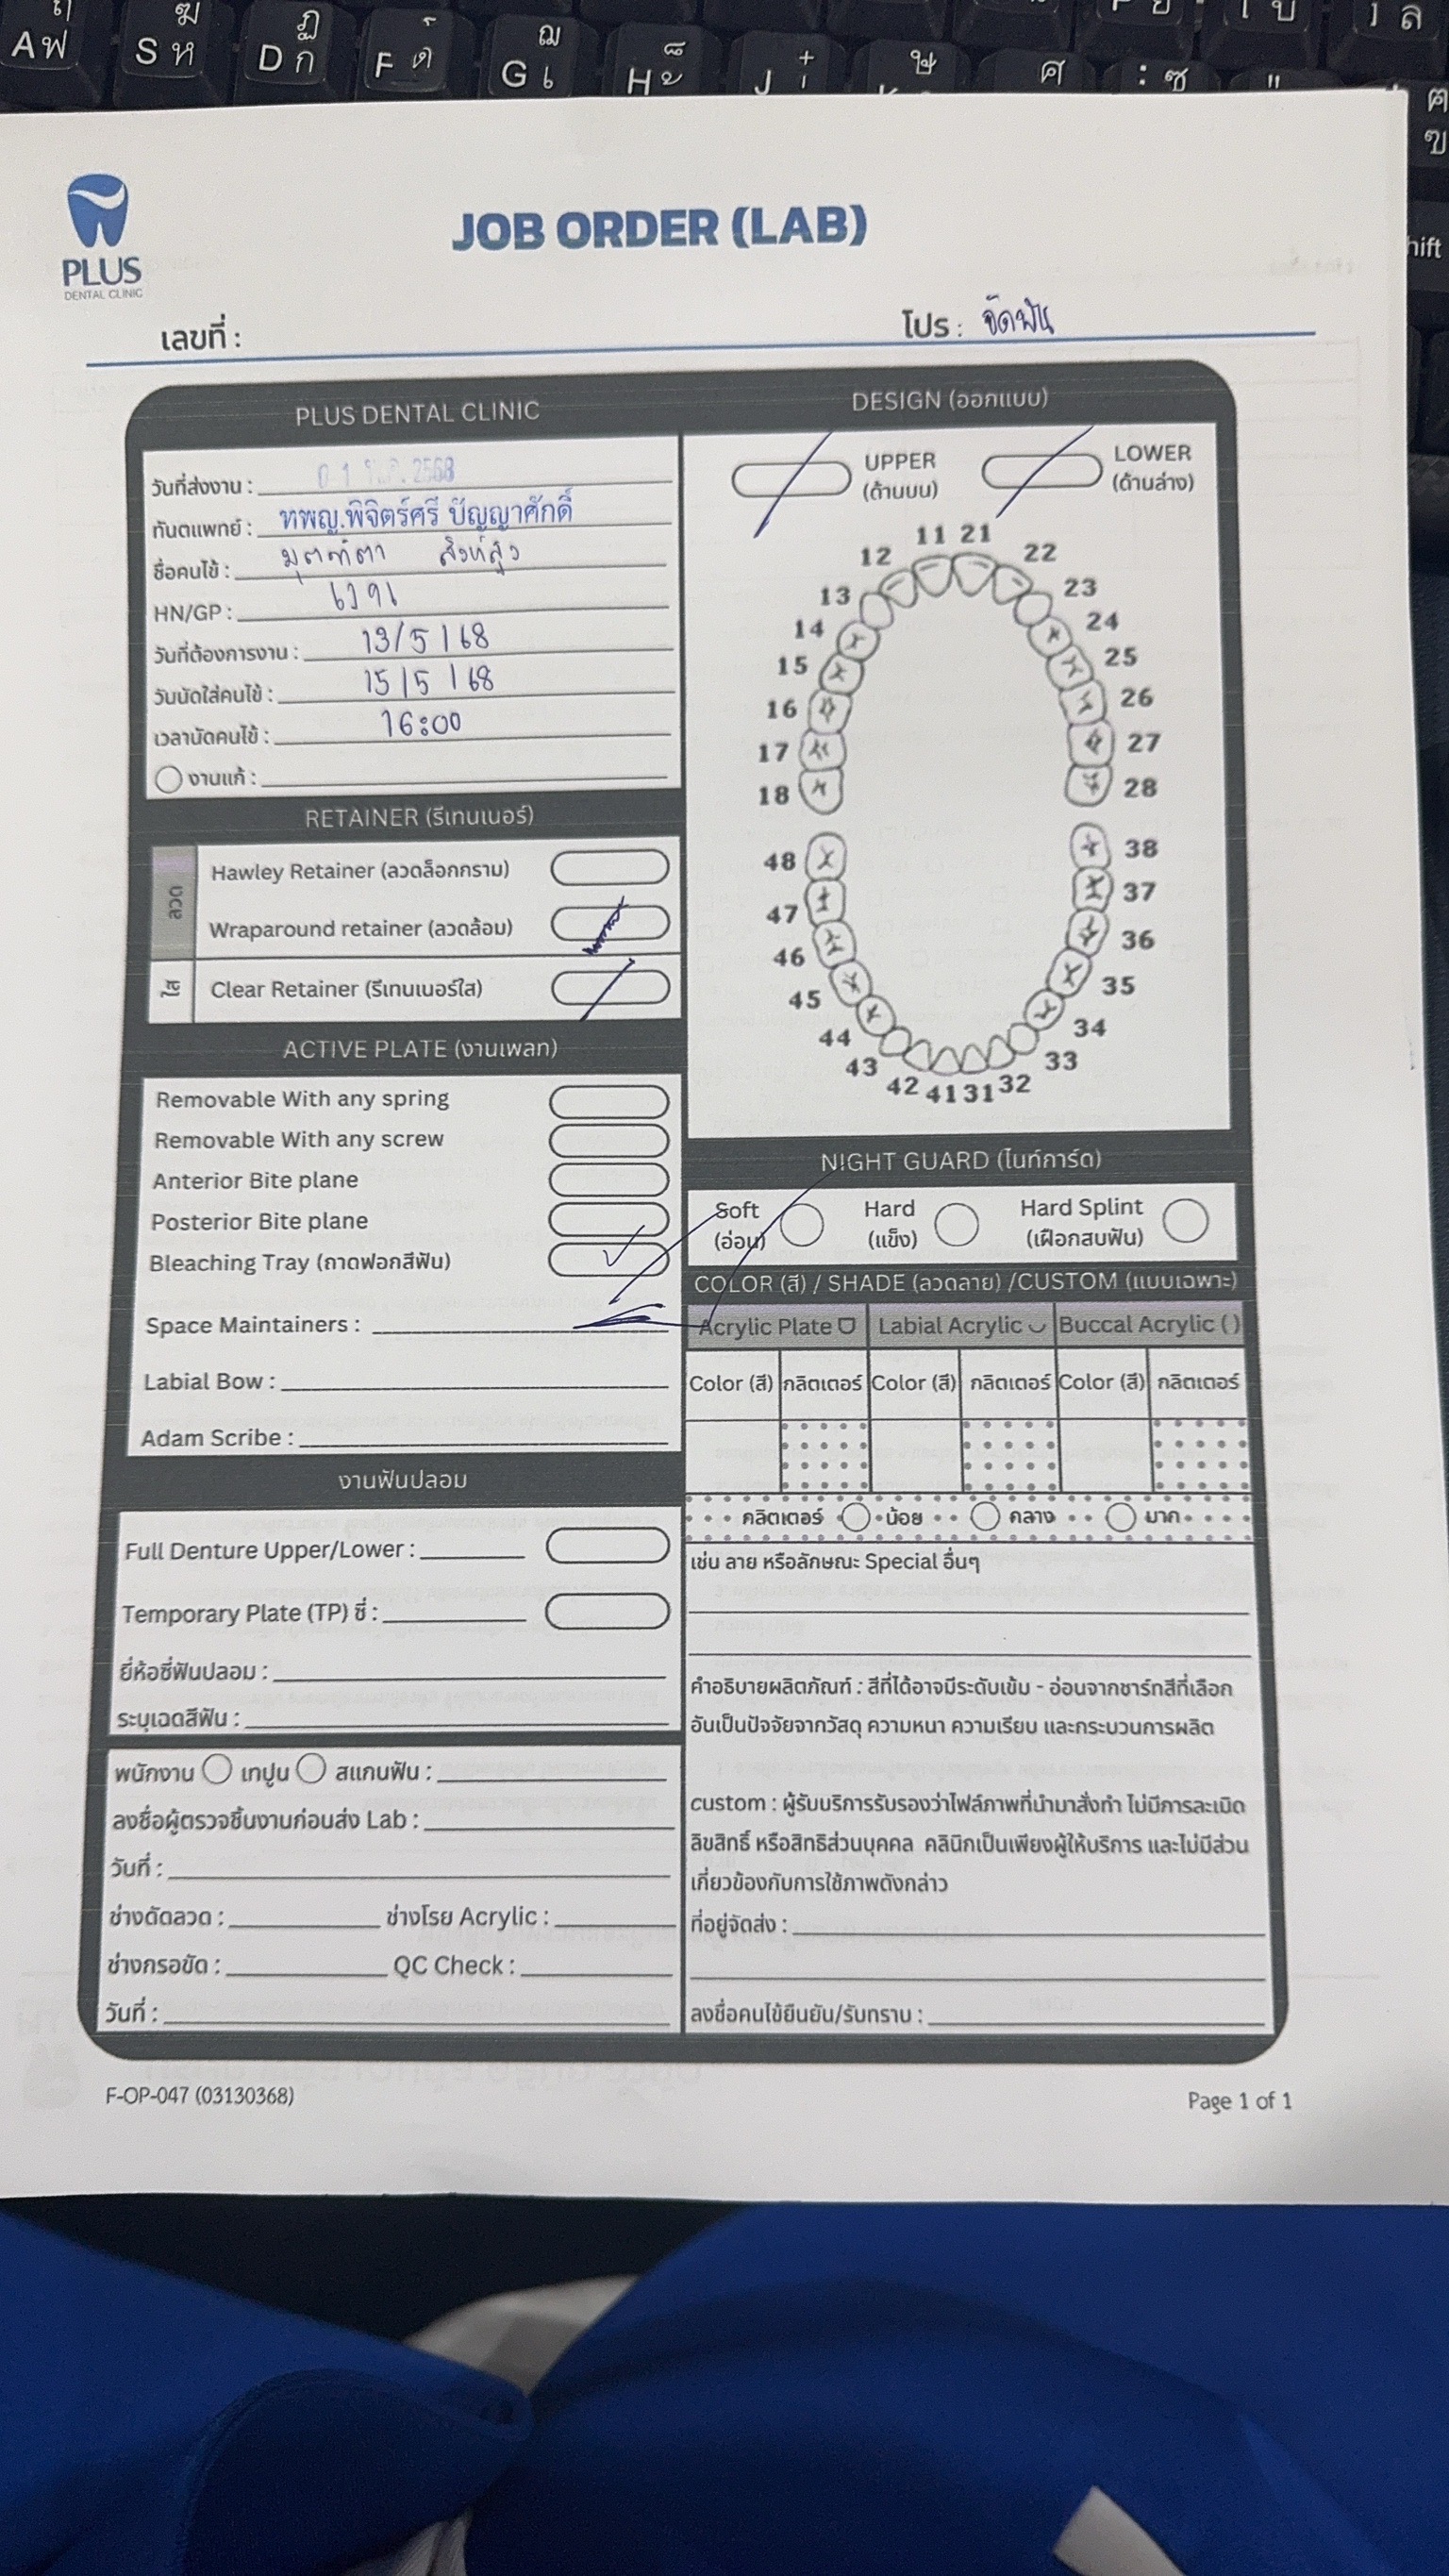 A ฟ S ฆ ห D ฏ ก F ด G ฌ เ H J ษ ศ : ซ " ฅ ฃ
hift
PLUS
DENTAL CLINIC
JOB ORDER (LAB)
เลขที่ :
โปร : จัดฟัน
PLUS DENTAL CLINIC
วันที่ส่งงาน : 0 1 พ.ค. 2568
ทันตแพทย์ : ทพญ.พิจิตร์ศรี ปัญญาศักดิ์
ชื่อคนไข้ : สิงห์สูง
HN/GP :
วันที่ต้องการงาน : 13/5/68
วันนัดใส่คนไข้ : 15/5/68
เวลานัดคนไข้ : 16:00
งานแก้ :
RETAINER (รีเทนเนอร์)
ลวด
Hawley Retainer (ลวดล็อกกราม)
Wraparound retainer (ลวดล้อม)
ใส
Clear Retainer (รีเทนเนอร์ใส)
ACTIVE PLATE (งานเพลท)
Removable With any spring
Removable With any screw
Anterior Bite plane
Posterior Bite plane
Bleaching Tray (ถาดฟอกสีฟัน)
Space Maintainers :
Labial Bow :
Adam Scribe :
งานฟันปลอม
Full Denture Upper/Lower :
Temporary Plate (TP) ซี่ :
ยี่ห้อซี่ฟันปลอม :
ระบุเฉดสีฟัน :
พนักงาน เทปูน สแกนฟัน :
ลงชื่อผู้ตรวจชิ้นงานก่อนส่ง Lab :
วันที่ :
ช่างดัดลวด : ช่างโรย Acrylic :
ช่างกรอขัด : QC Check :
วันที่ :
DESIGN (ออกแบบ)
UPPER
(ด้านบน)
LOWER
(ด้านล่าง)
11 21
12 22
13 23
14 24
15 25
16 26
17 27
18 28
48 38
47 37
46 36
45 35
44 34
43 33
42 41 31 32
NIGHT GUARD (ไนท์การ์ด)
Soft
(อ่อน)
Hard
(แข็ง)
Hard Splint
(เฝือกสบฟัน)
COLOR (สี) / SHADE (ลวดลาย) /CUSTOM (แบบเฉพาะ)
Acrylic Plate Labial Acrylic Buccal Acrylic ( )
Color (สี) กลิตเตอร์ Color (สี) กลิตเตอร์ Color (สี) กลิตเตอร์
กลิตเตอร์ น้อย กลาง มาก
เช่น ลาย หรือลักษณะ Special อื่นๆ
คำอธิบายผลิตภัณฑ์ : สีที่ได้อาจมีระดับเข้ม - อ่อนจากชาร์ทสีที่เลือก
อันเป็นปัจจัยจากวัสดุ ความหนา ความเรียบ และกระบวนการผลิต
custom : ผู้รับบริการรับรองว่าไฟล์ภาพที่นำมาสั่งทำ ไม่มีการละเมิด
ลิขสิทธิ์ หรือสิทธิส่วนบุคคล คลินิกเป็นเพียงผู้ให้บริการ และไม่มีส่วน
เกี่ยวข้องกับการใช้ภาพดังกล่าว
ที่อยู่จัดส่ง :
ลงชื่อคนไข้ยืนยัน/รับทราบ :
F-OP-047 (03130368)
Page 1 of 1